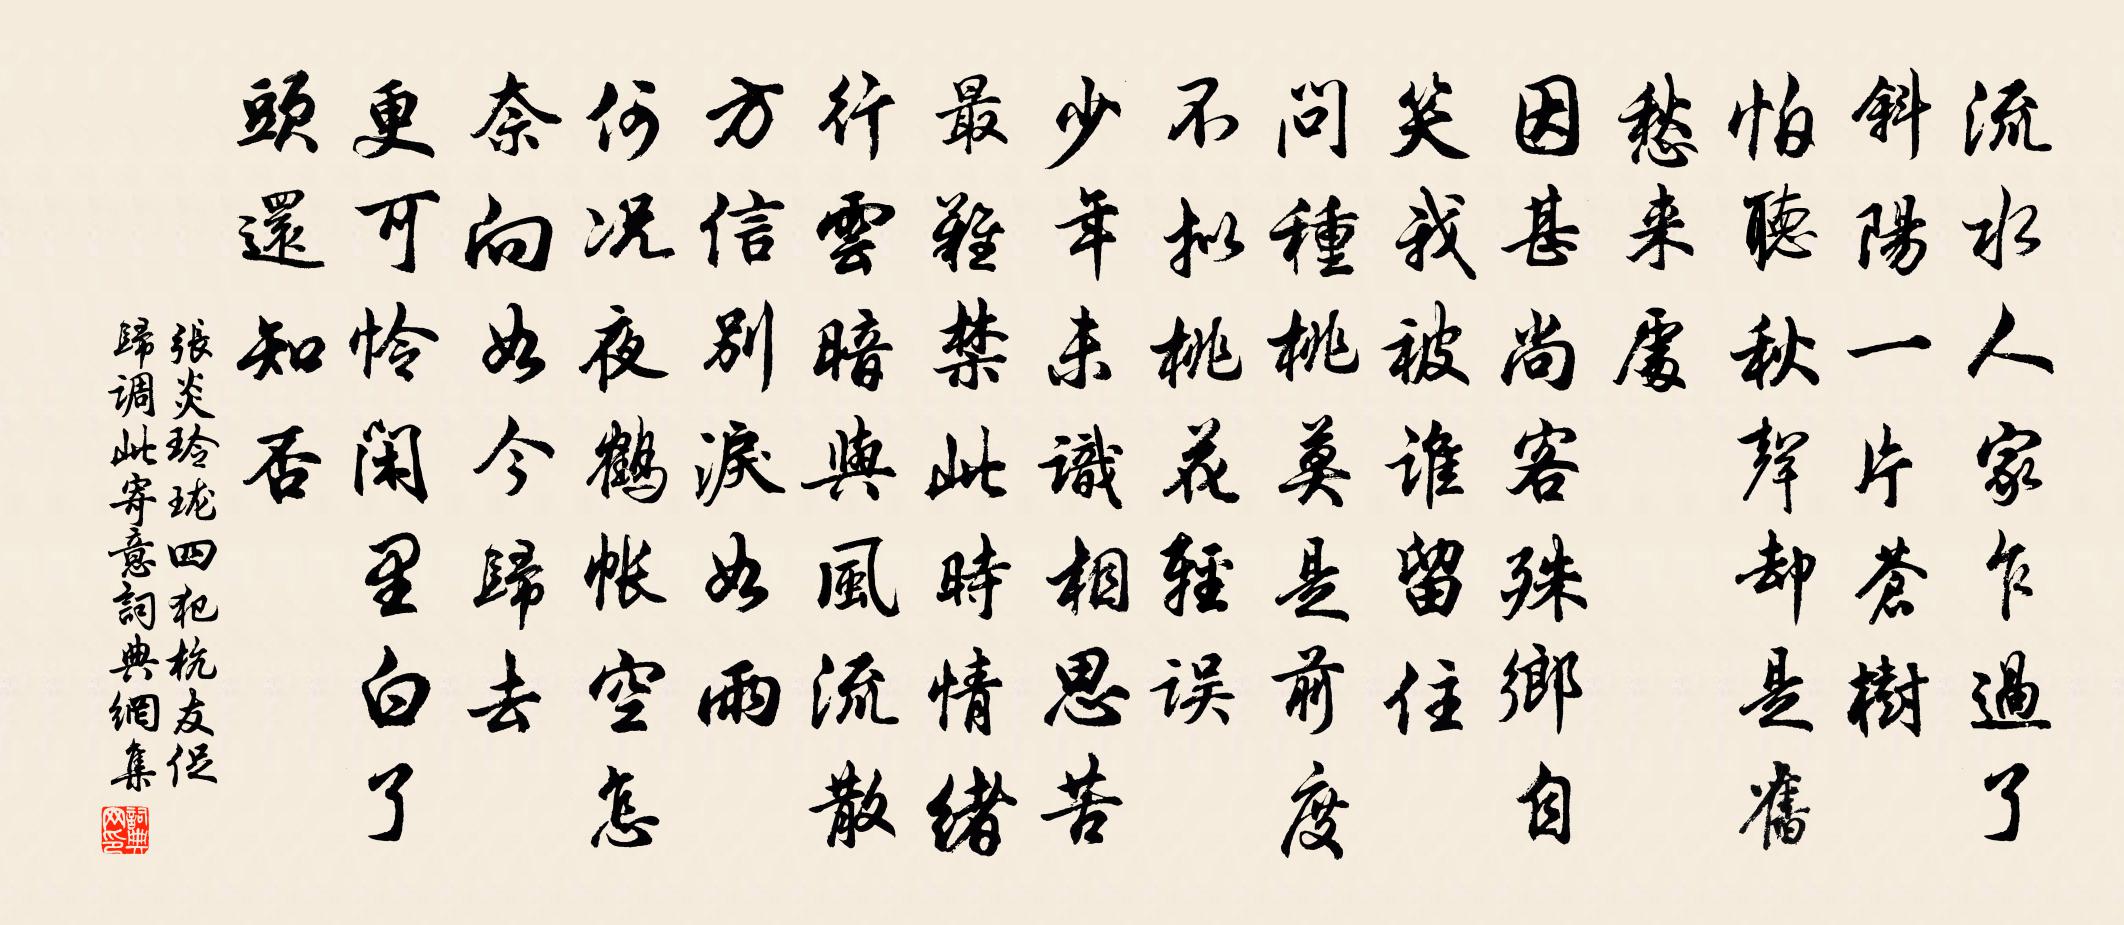 流水人家乍過了
斜陽一片蒼樹
怕聽秋聲却是舊
愁来處
因甚尚客殊鄉自
笑我被谁留住
問種桃莫是前度
不拟桃花輕误
少年未識相思苦
最難禁此時情緒
行雲暗與風流散
方信别淚如雨
何况夜鶴帐空怎
奈向如今歸去
更可怜闲里白了
頭還知否
張炎玲珑四犯杭友促
歸调此寄意詞典網集
詞典網印